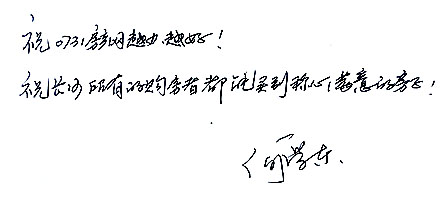 祝0731房网越办越好！
祝长沙所有的购房者都能买到称心惬意的房子！
何学东.